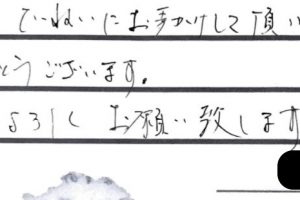 ていねいにお手かけして頂い
とうございます。
よろしくお願い致します